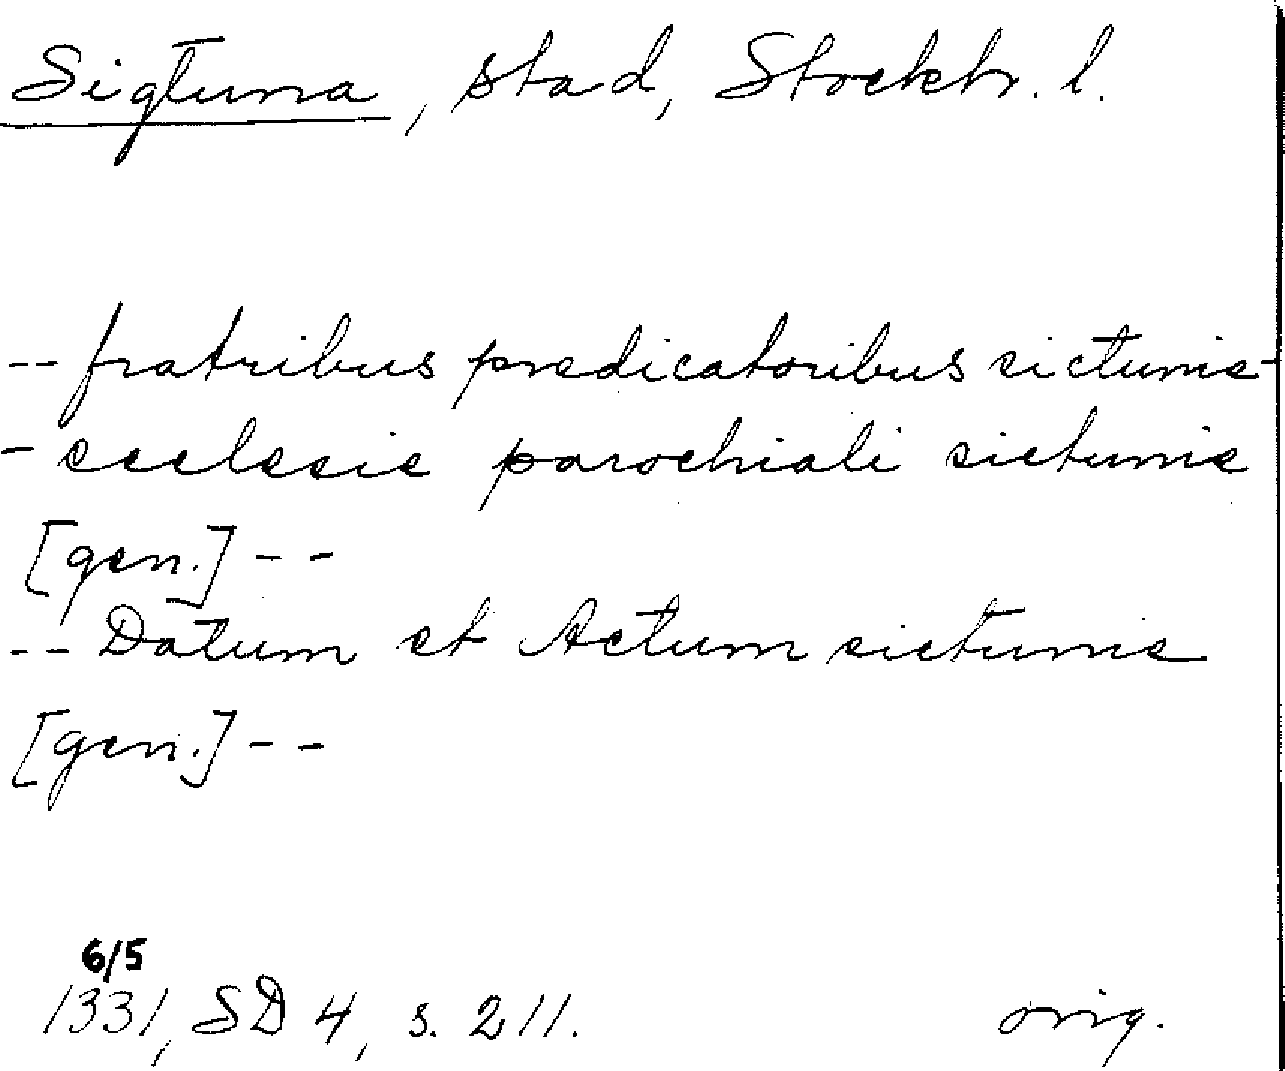 Sigtuna, stad, Stockh. l.
-- fratribus predicatoribus sictunie -
- ecclesie parochiali sictunie
[gen.] - -
-- Datum et Actum sictunie
[gen.] - -
6/5
1331, SD 4, s. 211. orig.